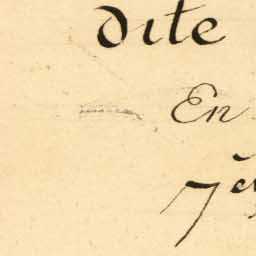 dite
En
7e